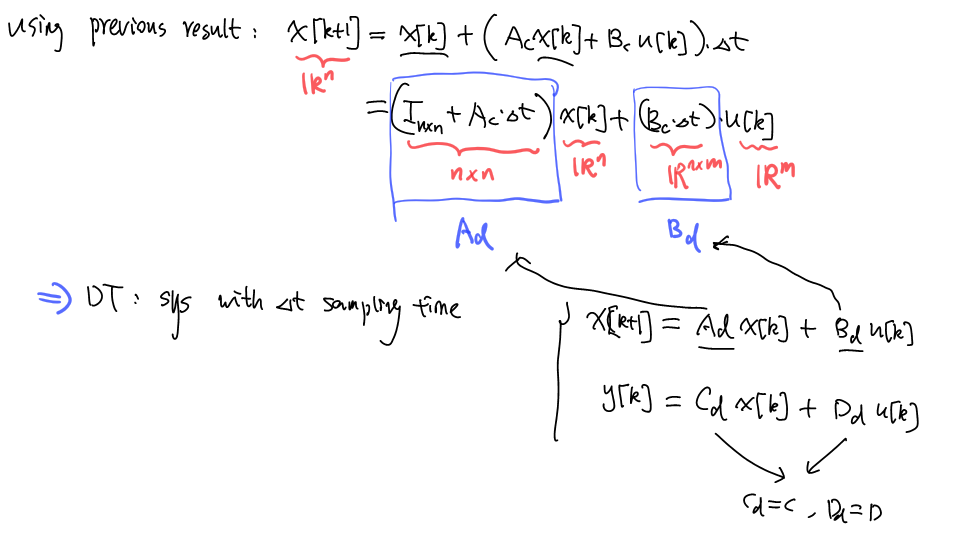 using previous result : x[k+1] = x[k] + (A_c x[k] + B_c u[k])·Δt
ℝⁿ
= (I_{n×n} + A_c·Δt) x[k] + (B_c·Δt)·u[k]
n×n ℝⁿ ℝ^{n×m} ℝ^m
A_d B_d
⇒ DT : sys with Δt sampling time
x[k+1] = A_d x[k] + B_d u[k]
y[k] = C_d x[k] + D_d u[k]
C_d=C , D_d=D